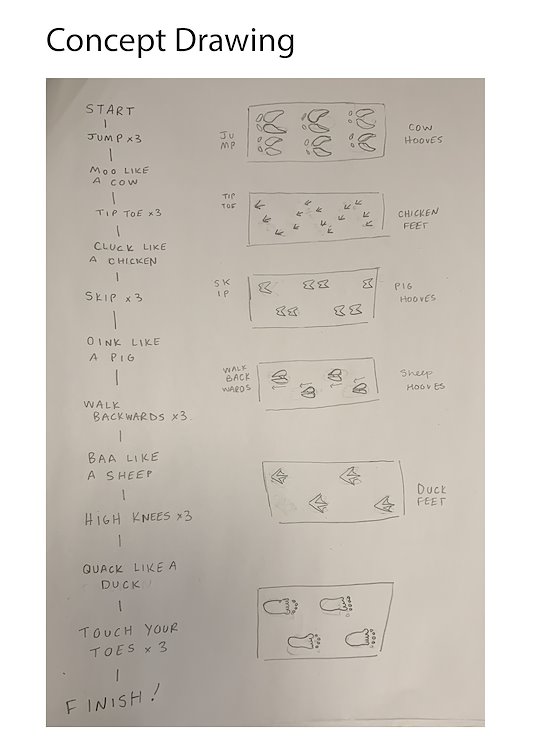 Concept Drawing
START
JUMP x3
MOO LIKE
A COW
TIP TOE x3
CLUCK LIKE
A CHICKEN
SKIP x3
OINK LIKE
A PIG
WALK
BACKWARDS x3
BAA LIKE
A SHEEP
HIGH KNEES x3
QUACK LIKE A
DUCK
TOUCH YOUR
TOES x 3
FINISH!
JU
MP
COW
HOOVES
TIP
TOE
CHICKEN
FEET
SK
IP
PIG
HOOVES
WALK
BACK
WARDS
Sheep
HOOVES
DUCK
FEET